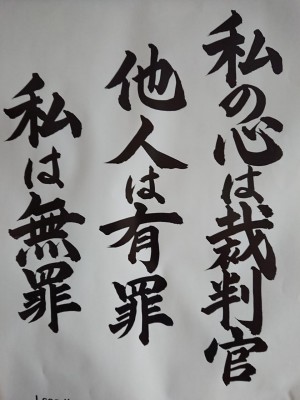 私の心は裁判官
他人は有罪
私は無罪